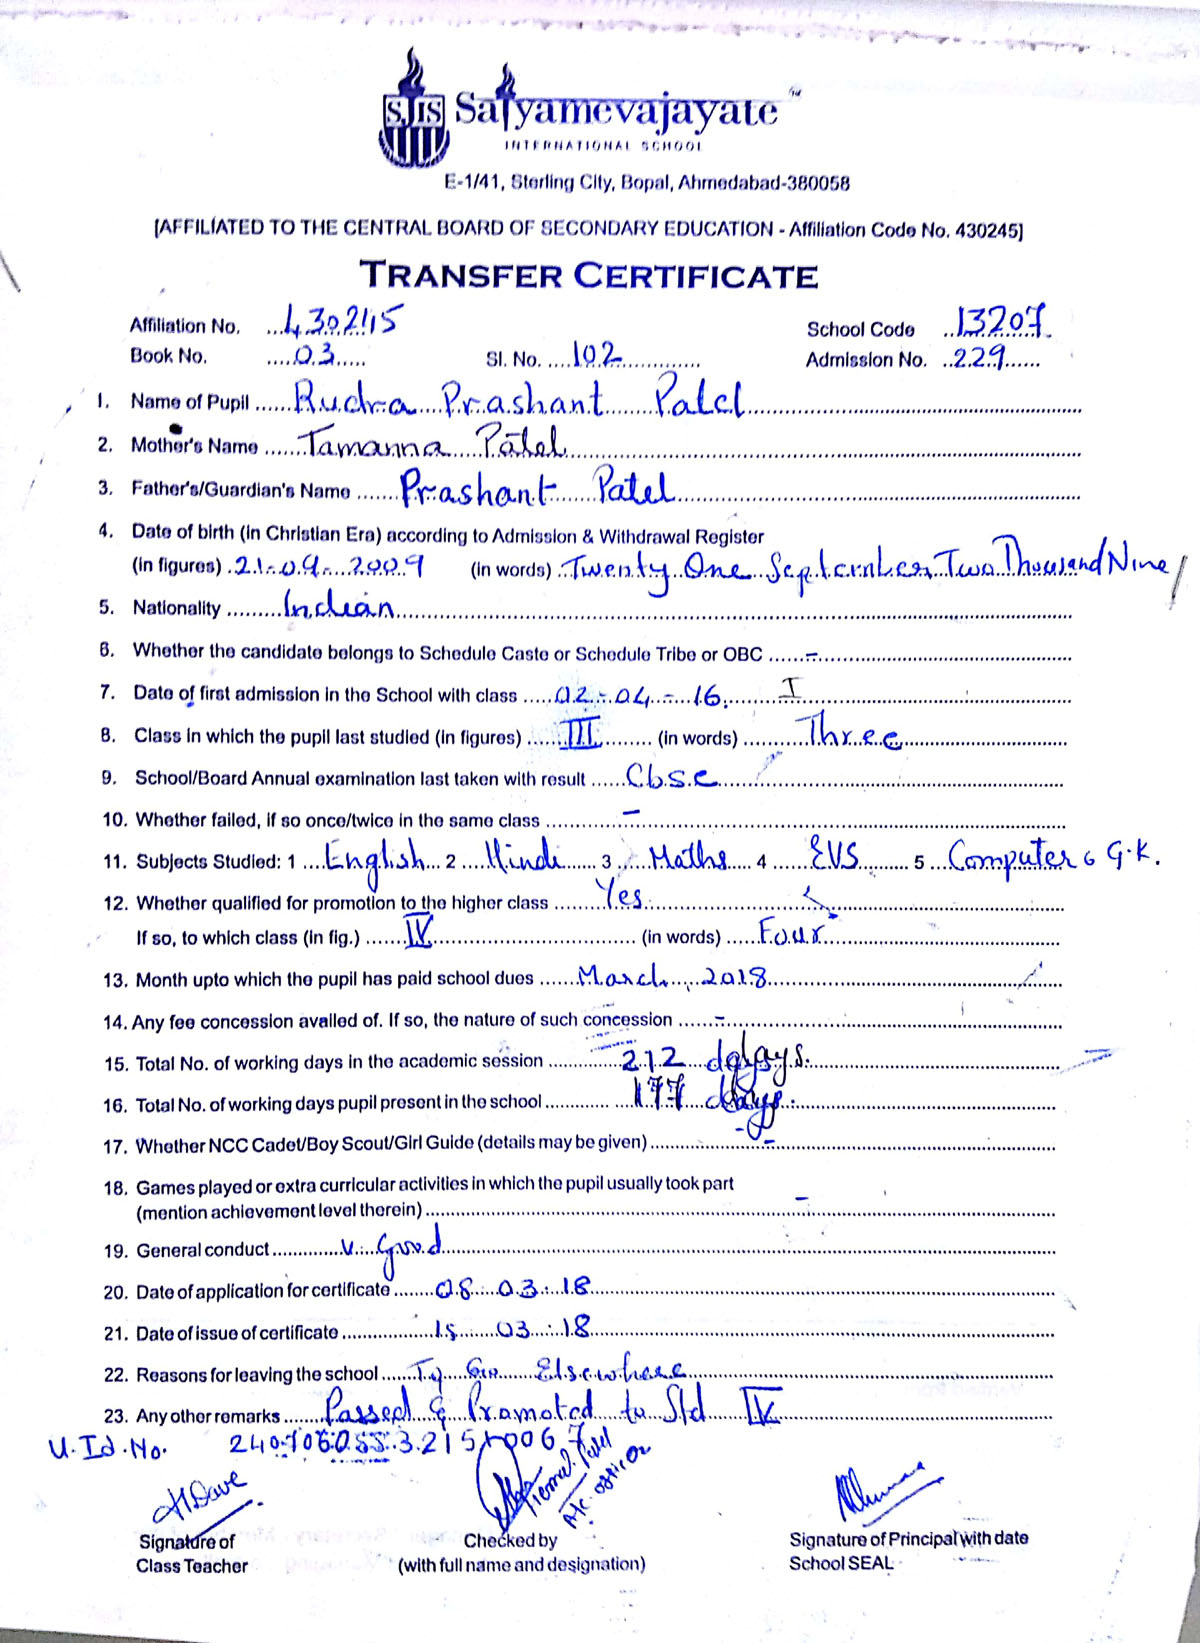 SJIS Satyamevajayate ™
INTERNATIONAL SCHOOL
E-1/41, Sterling City, Bopal, Ahmedabad-380058
[AFFILIATED TO THE CENTRAL BOARD OF SECONDARY EDUCATION - Affiliation Code No. 430245]
TRANSFER CERTIFICATE
Affiliation No. 430245 School Code 13207
Book No. 03 Sl. No. 102 Admission No. 229
1. Name of Pupil Rudra Prashant Patel
2. Mother's Name Tamanna Patel
3. Father's/Guardian's Name Prashant Patel
4. Date of birth (in Christian Era) according to Admission & Withdrawal Register
(in figures) 21-09-2009 (in words) Twenty One September Two Thousand Nine
5. Nationality Indian
6. Whether the candidate belongs to Schedule Caste or Schedule Tribe or OBC -
7. Date of first admission in the School with class 02-04-16. I
8. Class in which the pupil last studied (in figures) III (in words) Three
9. School/Board Annual examination last taken with result Cbse
10. Whether failed, if so once/twice in the same class -
11. Subjects Studied: 1 English 2 Hindi 3 Maths 4 EVS 5 Computer 6 G.K.
12. Whether qualified for promotion to the higher class Yes
If so, to which class (in fig.) IV (in words) Four
13. Month upto which the pupil has paid school dues March, 2018
14. Any fee concession availed of. If so, the nature of such concession -
15. Total No. of working days in the academic session 212 days.
16. Total No. of working days pupil present in the school 177 days.
17. Whether NCC Cadet/Boy Scout/Girl Guide (details may be given) -
18. Games played or extra curricular activities in which the pupil usually took part
(mention achievement level therein) -
19. General conduct V. Good
20. Date of application for certificate 08.03.18
21. Date of issue of certificate 15.03.18
22. Reasons for leaving the school To Go Elsewhere
23. Any other remarks Passed & Promoted to Std IV
U.Id.No.
HDave Patel
Signature of Checked by Signature of Principal with date
Class Teacher (with full name and designation) School SEAL